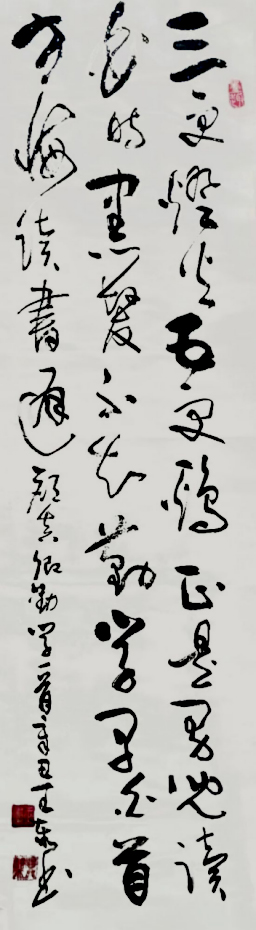 三更燈火五更鷄正是男兒讀
書時黑髮不知勤學早白首
方悔讀書遲顏真卿勸學一首辛丑王東书